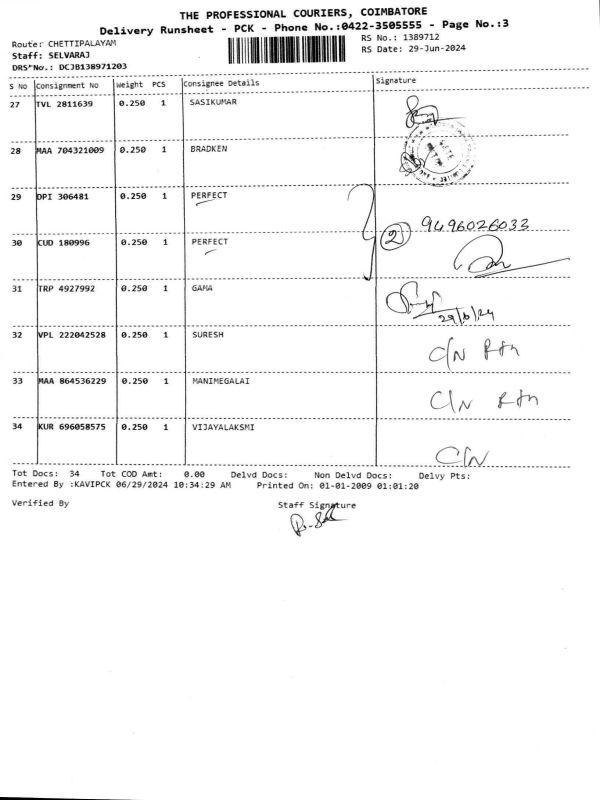 THE PROFESSIONAL COURIERS, COIMBATORE
Delivery Runsheet - PCK - Phone No.:0422-3505555 - Page No.:3
Route: CHETTIPALAYAM
RS No.: 1389712
Staff: SELVARAJ
RS Date: 29-Jun-2024
DRS No.: DCJB138971203
S No Consignment No Weight PCS Consignee Details Signature
27 TVL 2811639 0.250 1 SASIKUMAR
28 MAA 704321009 0.250 1 BRADKEN
29 DPI 306481 0.250 1 PERFECT
2 9496026033
30 CUD 180996 0.250 1 PERFECT
31 TRP 4927992 0.250 1 GAMA
29/6/24
32 VPL 222042528 0.250 1 SURESH
C/N Rtn
33 MAA 864536229 0.250 1 MANIMEGALAI
C/N Rtn
34 KUR 696058575 0.250 1 VIJAYALAKSMI
C/N
Tot Docs: 34 Tot COD Amt: 0.00 Delvd Docs: Non Delvd Docs: Delvy Pts:
Entered By :KAVIPCK 06/29/2024 10:34:29 AM Printed On: 01-01-2009 01:01:20
Verified By Staff Signature